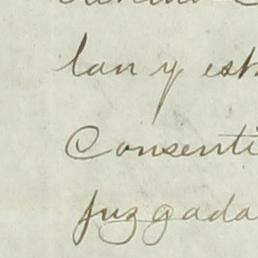 lan y est
Consenti
juzgada